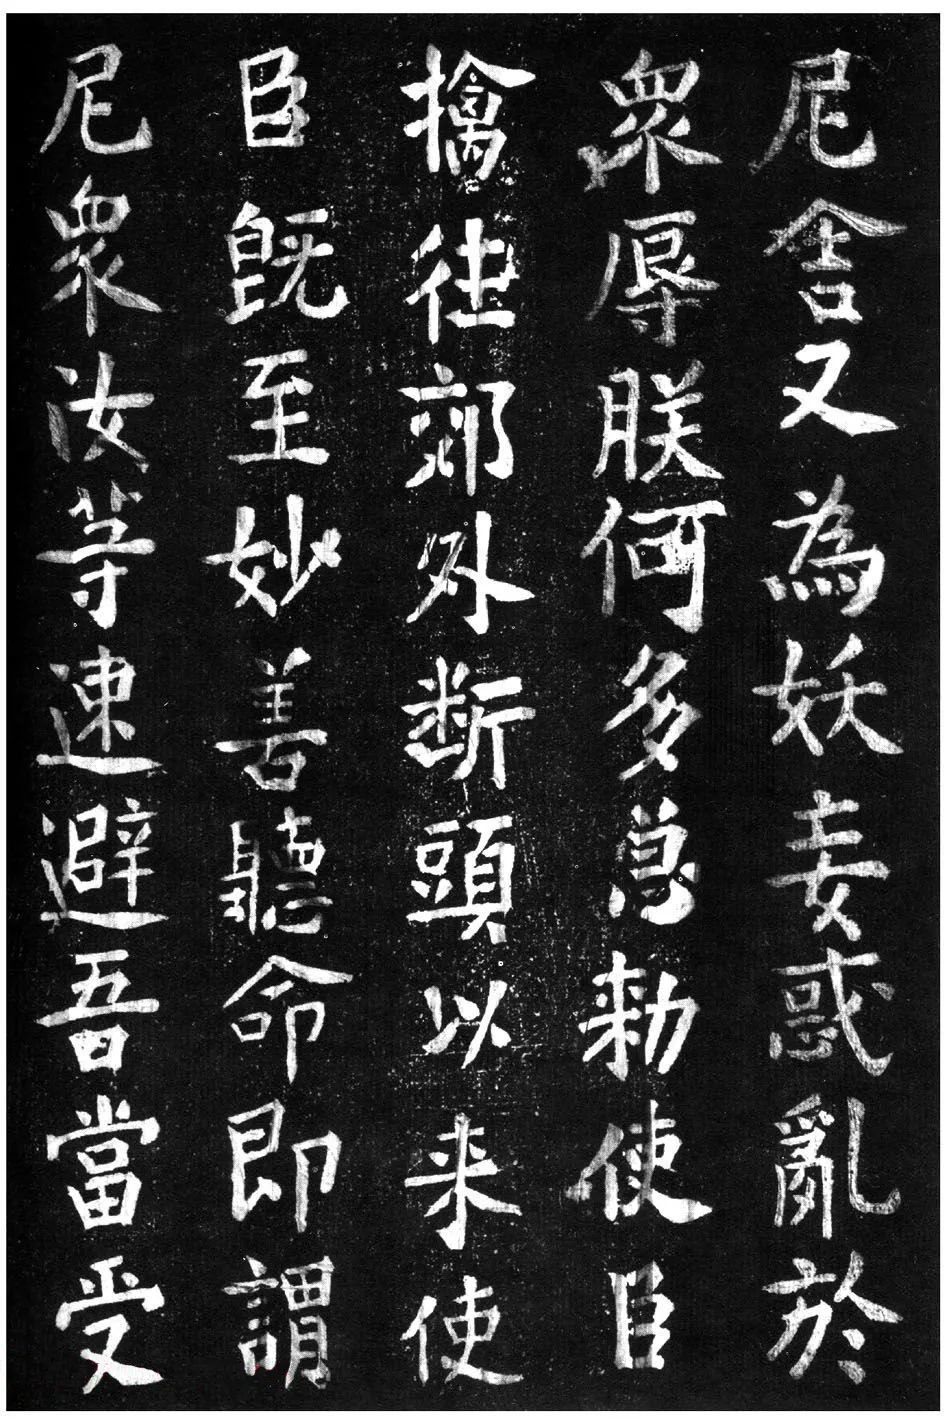 尼舎又為妖妄惑亂於
衆辱朕何多怱勑使臣
擒徃郊外断頭以来使
臣既至妙善聽命即謂
尼衆汝等速避吾當受